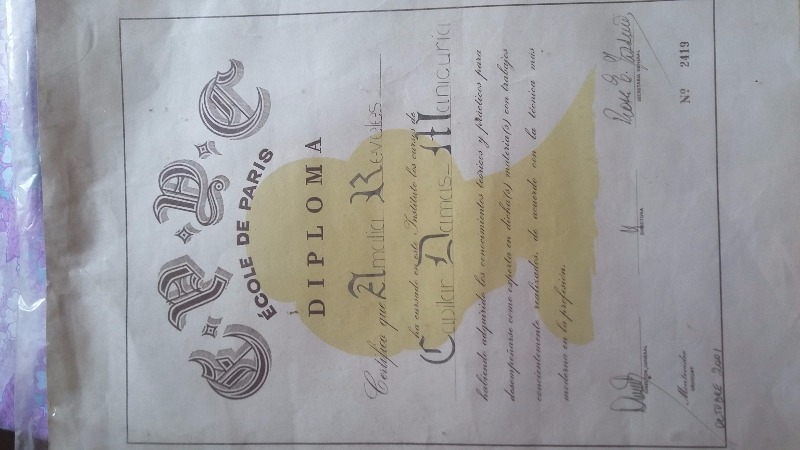 ÉCOLE DE PARIS
DIPLOMA
Certifica que Amalia Reveles
ha cursado en este Instituto los cursos de
Capilar Damas - Manicuria
habiendo adquirido los conocimientos teóricos y prácticos para
desempeñarse como experto en dicha(s) materia(s) con trabajos
concientemente realizados, de acuerdo con la técnica más
moderna en la profesión.
DIRECTORA
SECRETARIA GENERAL
Montevideo
URUGUAY
OCTUBRE 2001
Nº 2419